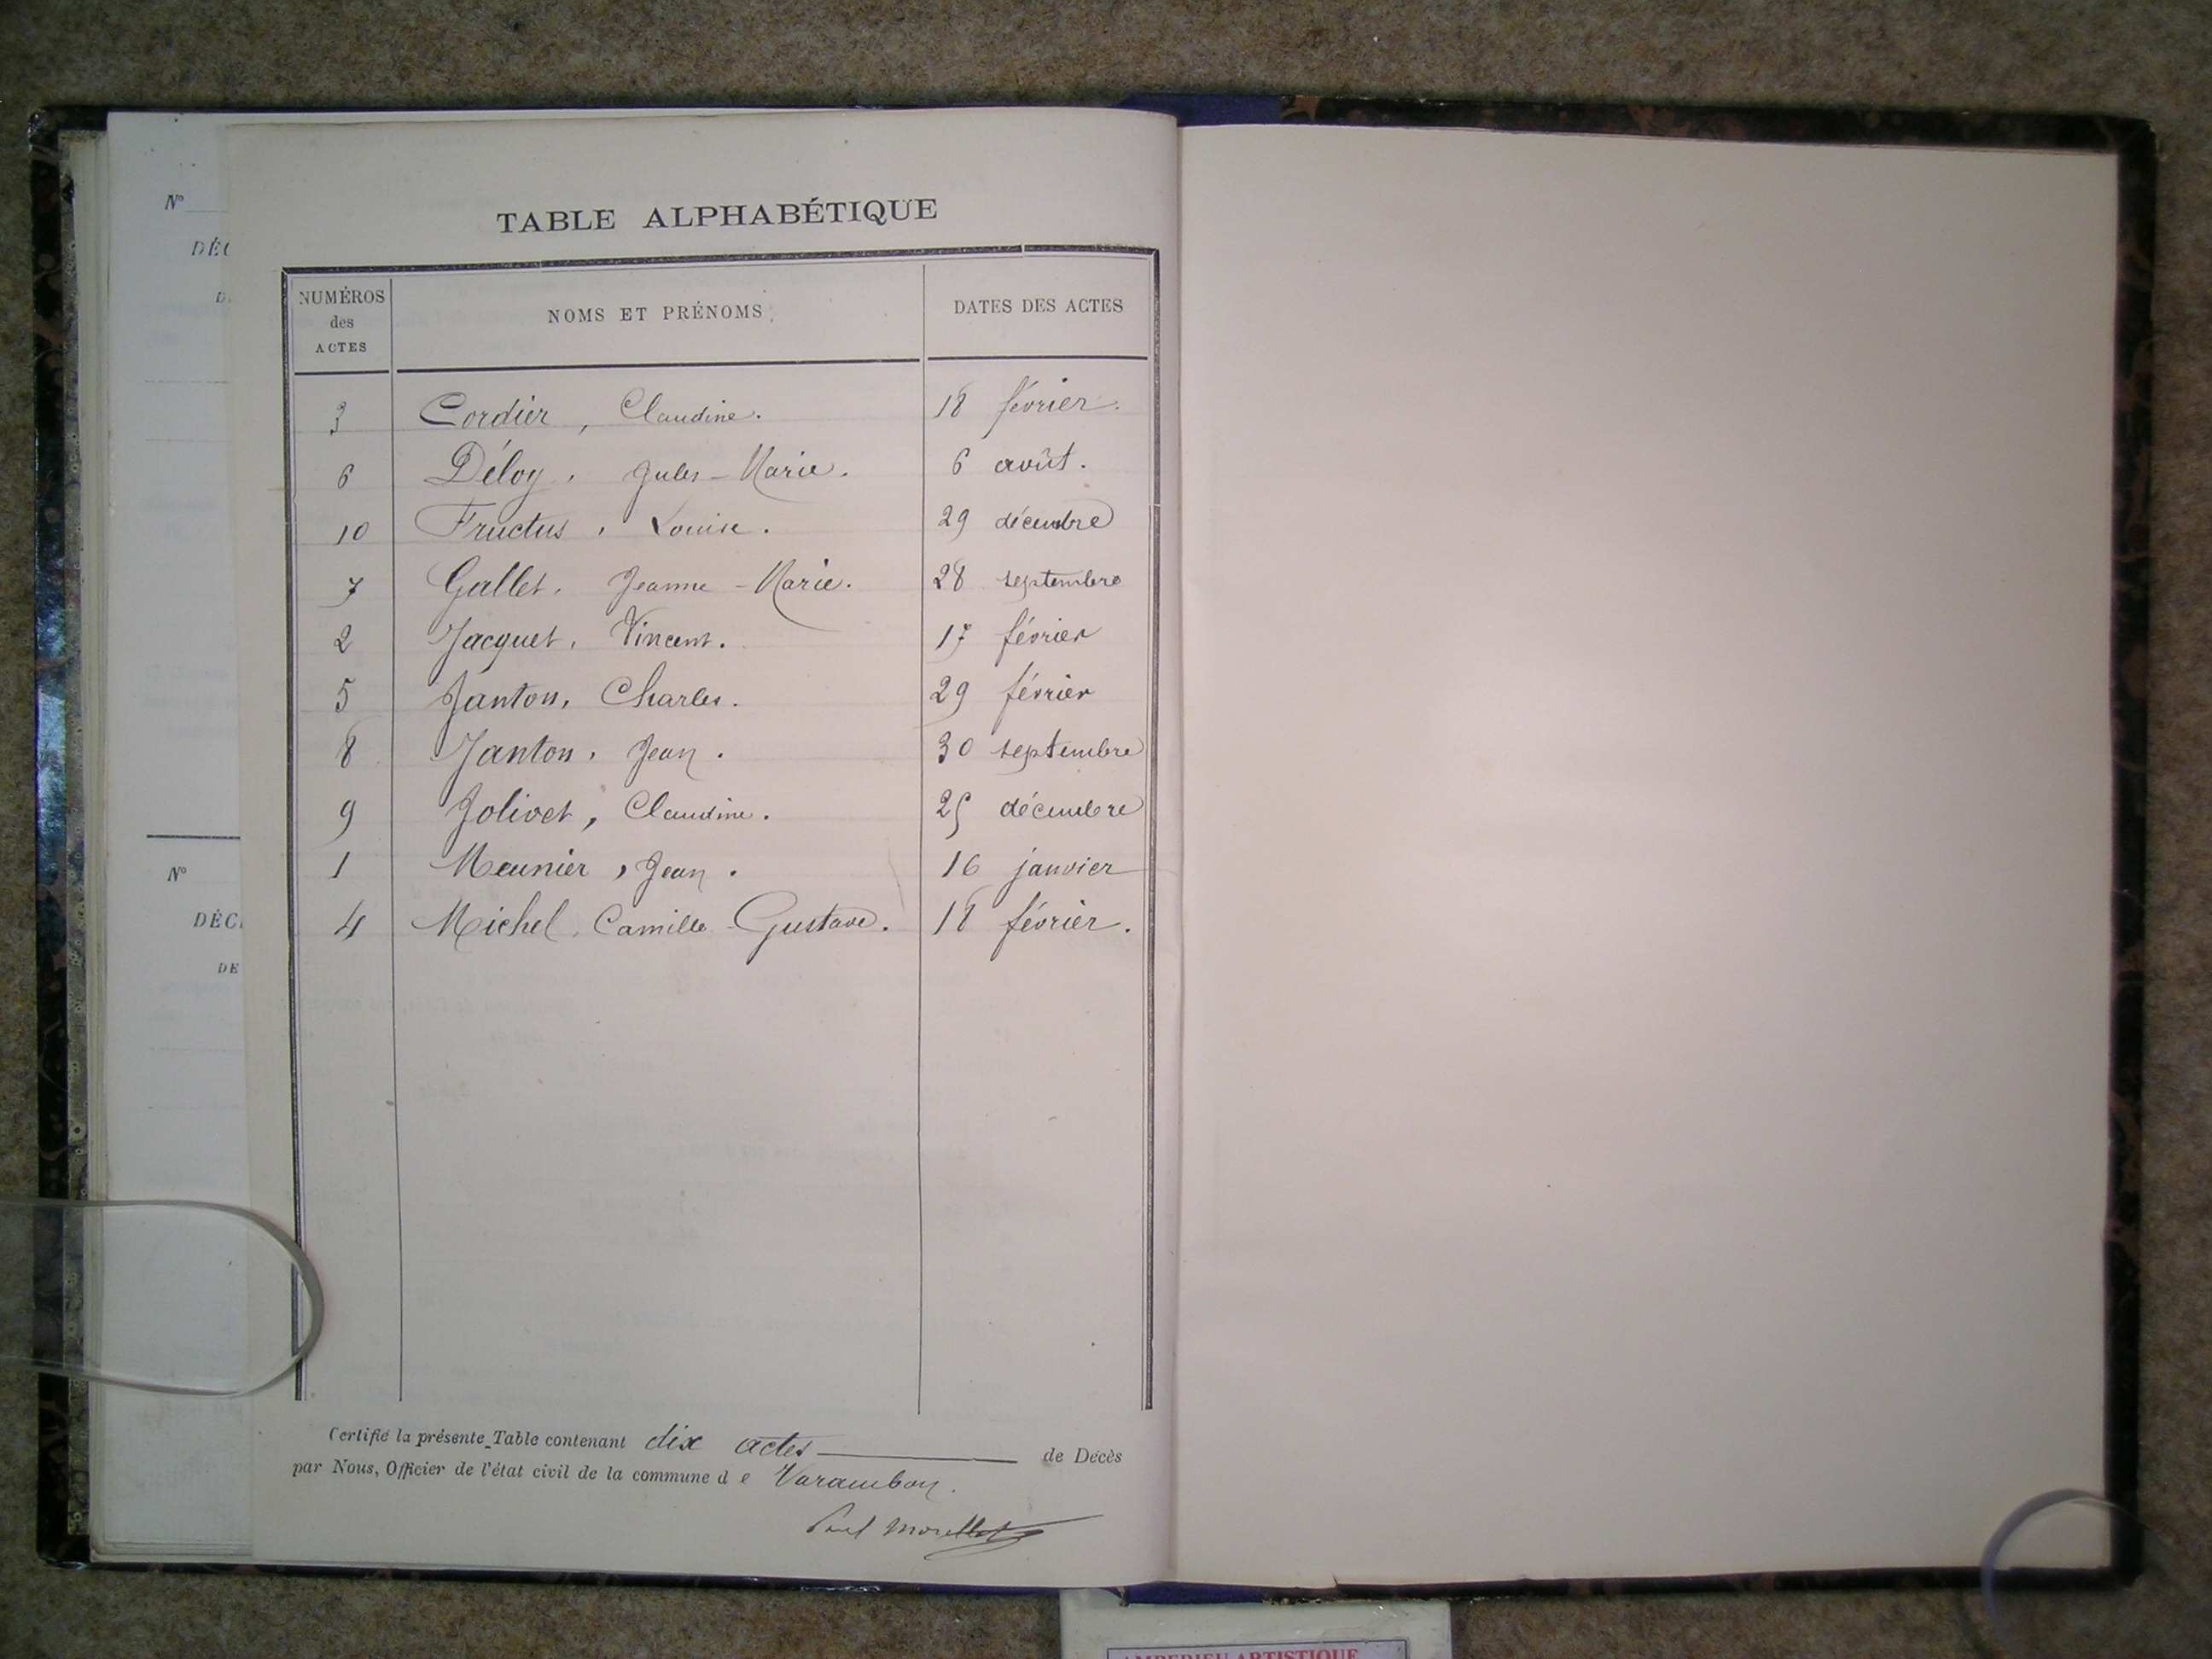 N°
DÉC
D
N°
DÉC
DE
TABLE ALPHABÉTIQUE
NUMÉROS
des
ACTES
NOMS ET PRÉNOMS
DATES DES ACTES
3 Cordier, Claudine. 18 février.
6 Déloy, Jules-Marie. 6 août.
10 Fructus, Louise. 29 décembre
7 Gallet, Jeanne-Marie. 28 septembre
2 Jacquet, Vincent. 17 février
5 Janton, Charles. 29 février
8 Janton, Jean. 30 septembre
9 Jolivet, Claudine. 25 décembre
1 Meunier, Jean. 16 janvier
4 Michel, Camille-Gustave. 18 février.
Certifié la présente Table contenant dix actes de Décès
par Nous, Officier de l'état civil de la commune de Varambon.
Paul Morellet
AMBERIEU ARTISTIQUE